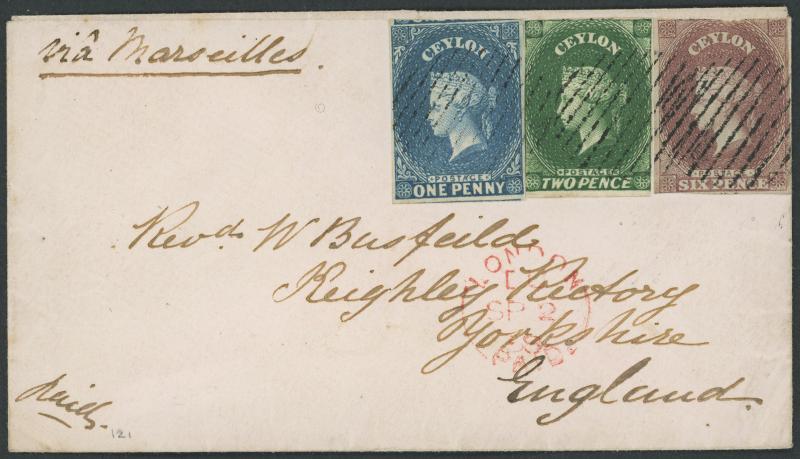 viâ Marseilles.
CEYLON
POSTAGE
ONE PENNY
CEYLON
POSTAGE
TWO PENCE
CEYLON
POSTAGE
SIX PENCE
Revd. W Busfeild
Keighley Rectory
Yorkshire
England.
LONDON
SP 2
Paid
121